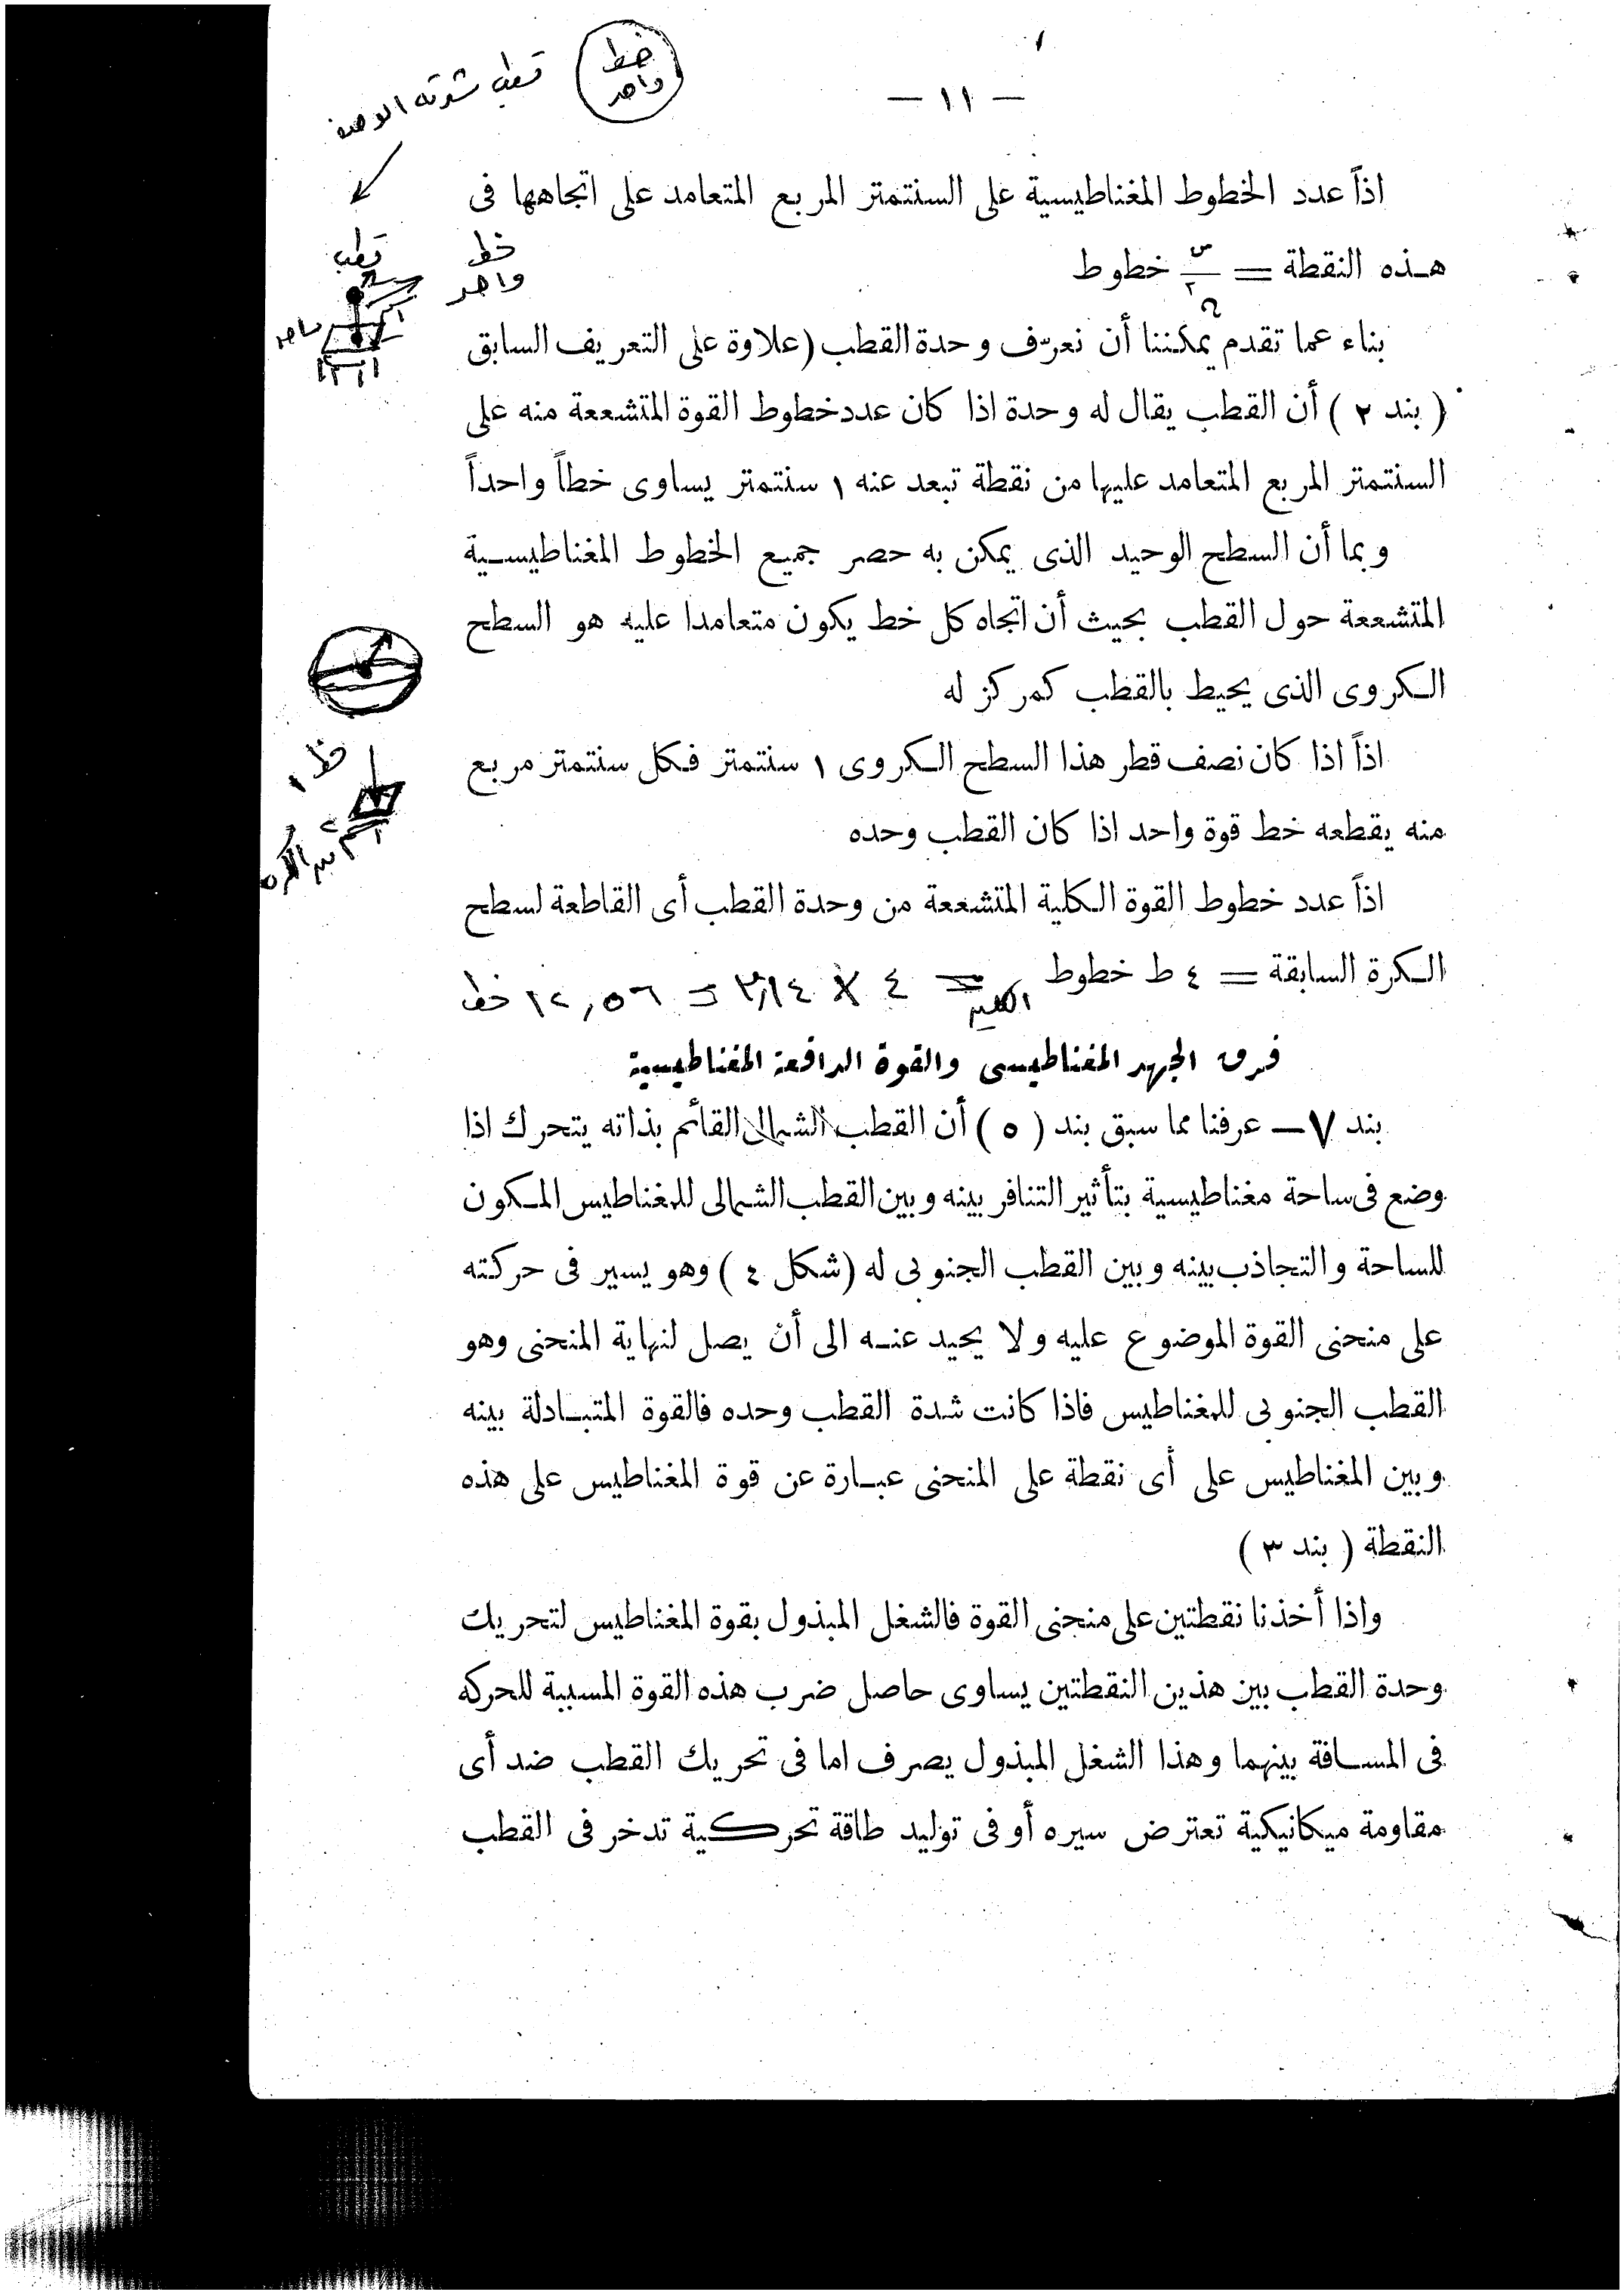 خط
واحد
قطب شدته الوحدة
— ١١ —
اذاً عدد الخطوط المغناطيسية على السنتمتر المربع المتعامد على اتجاهها فى
هـذه النقطة = س/م٢ خطوط
خط
واحد
قطب
بناء عما تقدم يمكننا أن نعرّف وحدة القطب (علاوة على التعريف السابق
( بند ٢ ) أن القطب يقال له وحدة اذا كان عدد خطوط القوة المتشععة منه على
السنتمتر المربع المتعامد عليها من نقطة تبعد عنه ١ سنتمتر يساوى خطاً واحداً
وبما أن السطح الوحيد الذى يمكن به حصر جميع الخطوط المغناطيسـية
المتشععة حول القطب بحيث أن اتجاه كل خط يكون متعامدا عليه هو السطح
الـكروى الذى يحيط بالقطب كمركز له
خط ١
اذاً اذا كان نصف قطر هذا السطح الـكروى ١ سنتمتر فـكل سنتمتر مربع
منه يقطعه خط قوة واحد اذا كان القطب وحده
اذاً عدد خطوط القوة الـكلية المتشععة من وحدة القطب أى القاطعة لسطح
الـكرة السابقة = ٤ ط خطوط = ٤ × ٣,١٤ = ١٢,٥٦ خط
فرق الجهد المغناطيسى والقوة الدافعة المغناطيسية
بند ٧ — عرفنا مما سبق بند ( ٥ ) أن القطب الشمالى القائم بذاته يتحرك اذا
وضع فى ساحة مغناطيسية بتأثير التنافر بينه وبين القطب الشمالى للمغناطيس المـكون
للساحة والتجاذب بينه وبين القطب الجنوبى له (شكل ٤ ) وهو يسير فى حركته
على منحنى القوة الموضوع عليه ولا يحيد عنـه الى أن يصل لنهاية المنحنى وهو
القطب الجنوبى للمغناطيس فاذا كانت شدة القطب وحده فالقوة المتبـادلة بينه
وبين المغناطيس على أى نقطة على المنحنى عبـارة عن قوة المغناطيس على هذه
النقطة ( بند ٣ )
واذا أخذنا نقطتين على منحنى القوة فالشغل المبذول بقوة المغناطيس لتحريك
وحدة القطب بين هذين النقطتين يساوى حاصل ضرب هذه القوة المسببة للحركه
فى المسـافة بينهما وهذا الشغل المبذول يصرف اما فى تحريك القطب ضد أى
مقاومة ميكانيكية تعترض سيره أو فى توليد طاقة تحركية تدخر فى القطب